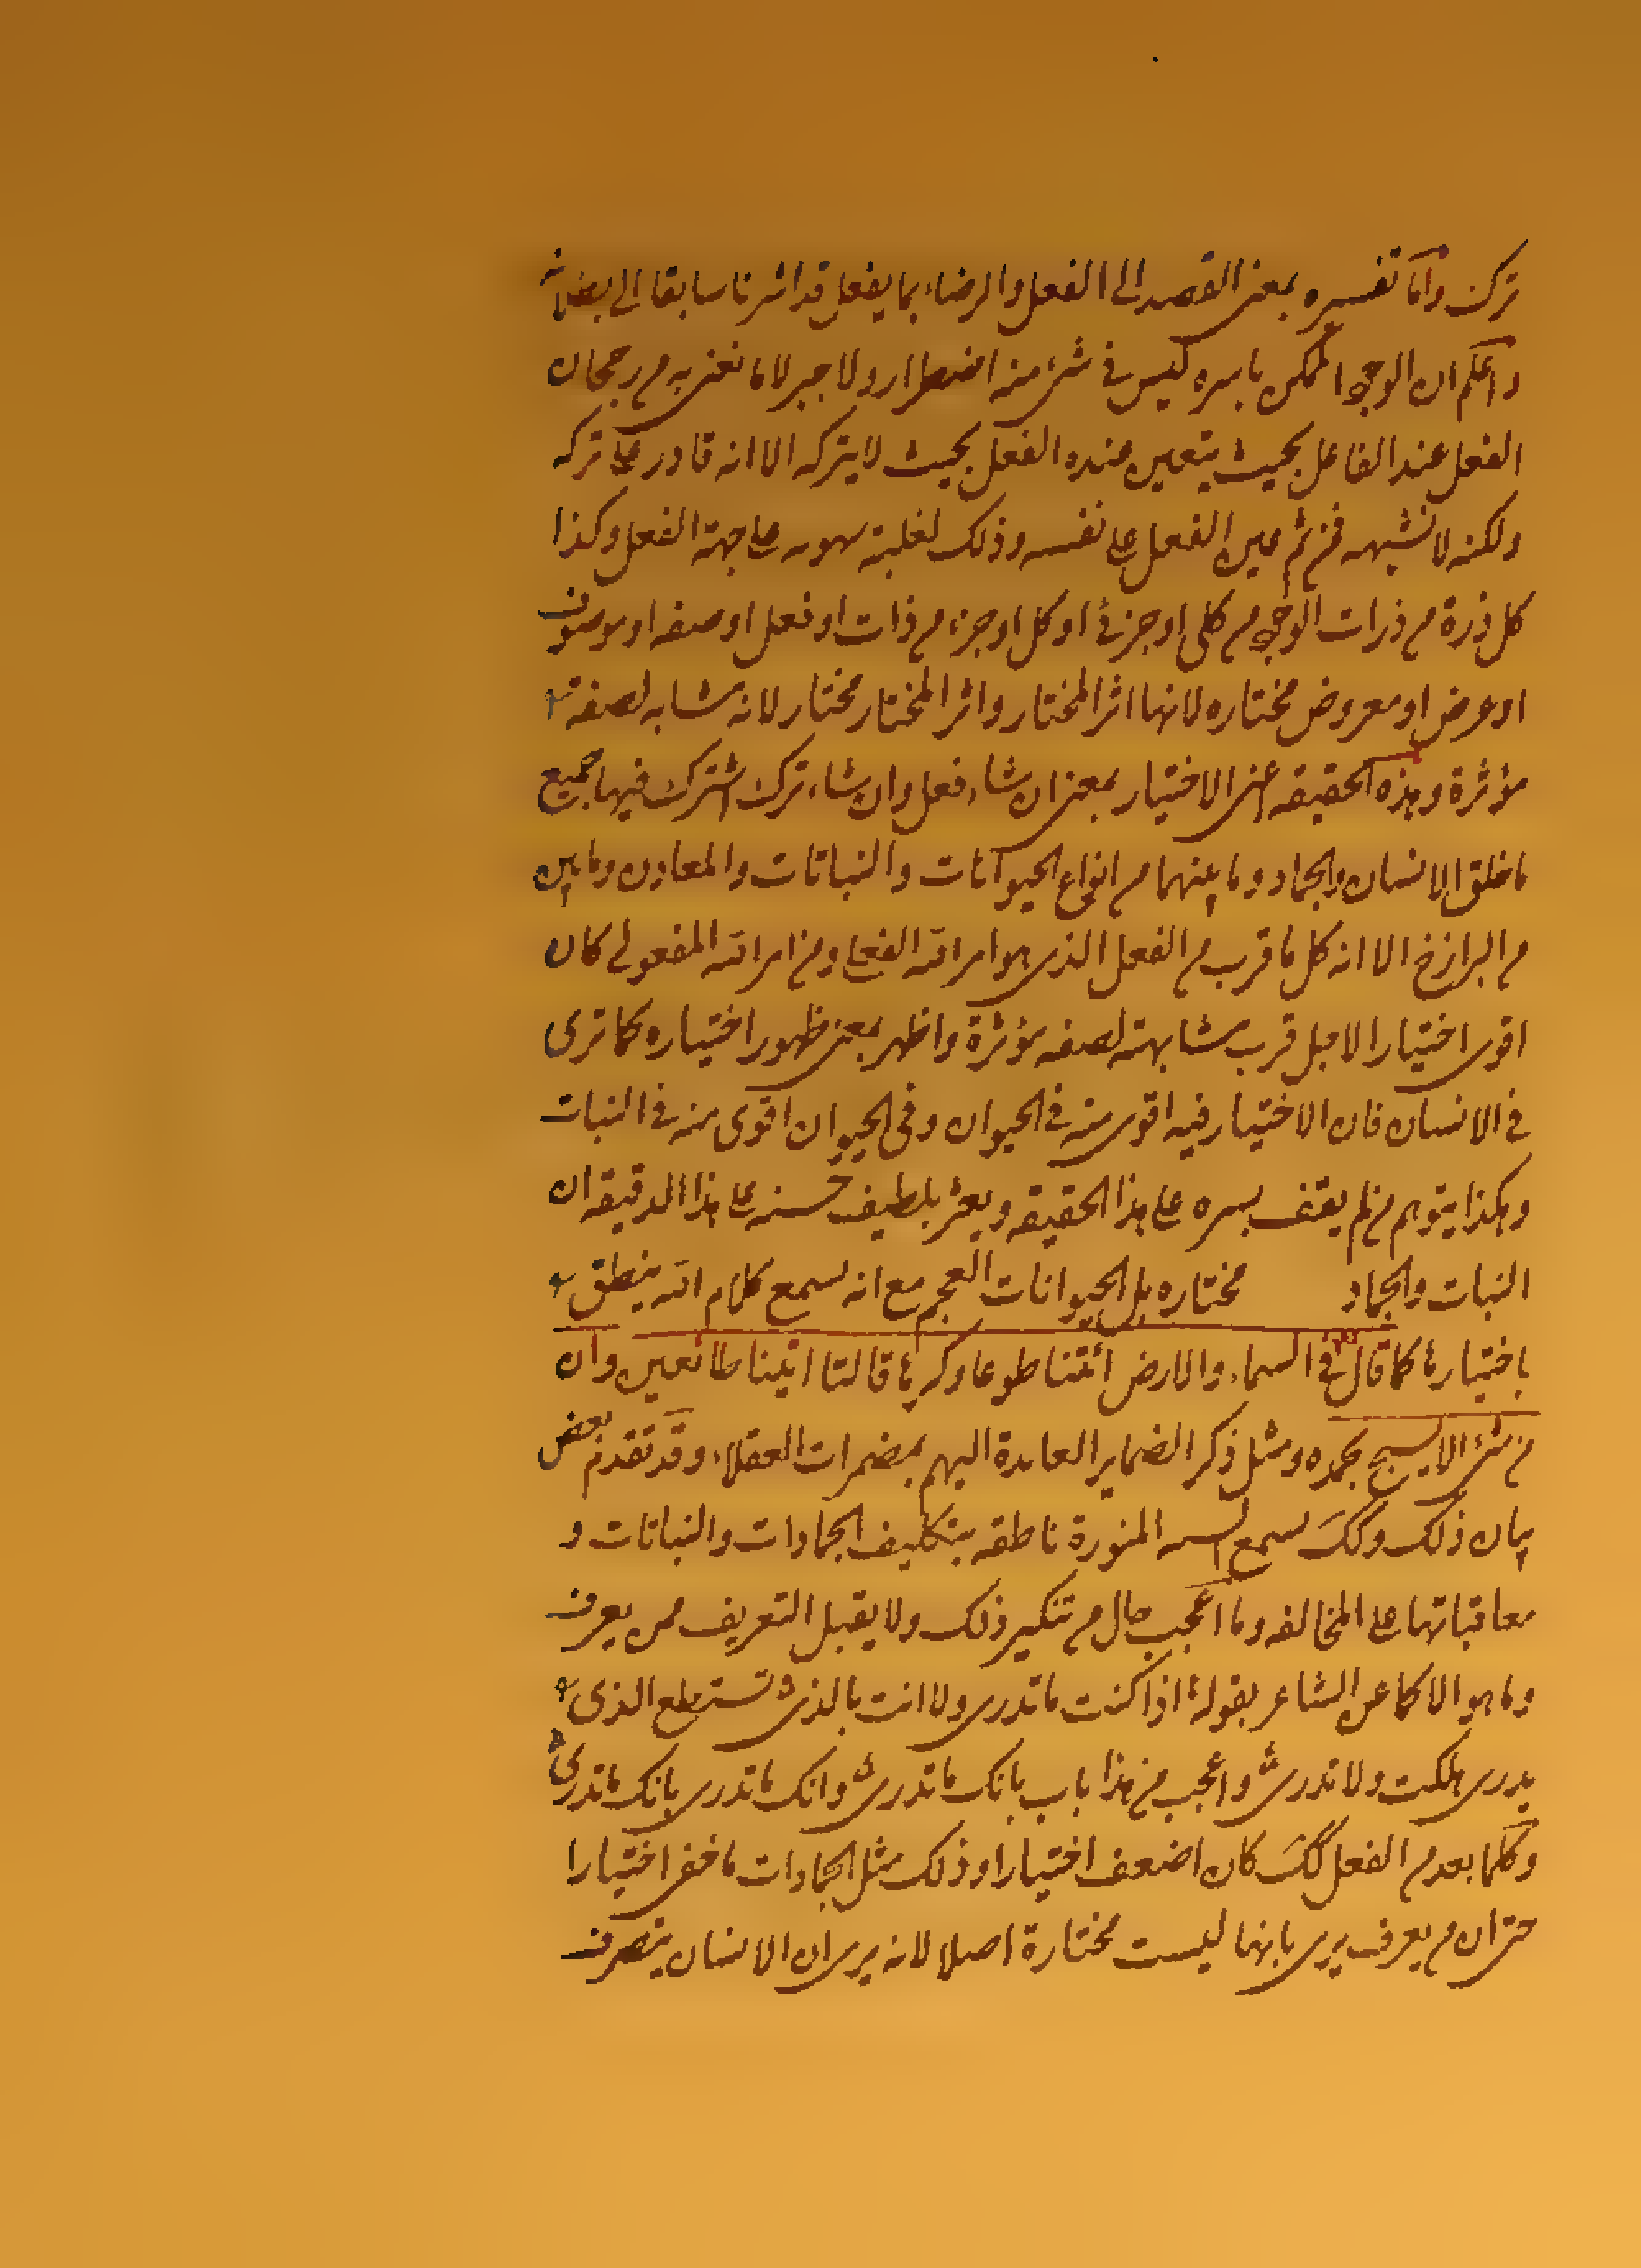 ترك واما تفسيره بمعنى القصد الى الفعل والرضاء بما يفعل قد اشرنا سابقا الى بطلانه
واعلم ان الوجود الممكن باسره ليس فى شئ منه اضطرار ولا جبر لا ما نعنى به من رجحان
الفعل عند الفاعل بحيث يتعين عنده الفعل بحيث لا يتركه الا انه قادر على تركه
ولكنه لا تشبهه فمن ثم عين الفعل على نفسه وذلك لغلبة على جهة الفعل وكذا
كل ذرة من ذرات الوجود من كلى او جزئى او كل او جزء من ذات او فعل او صفه او موصوف
او عرض او معروض مختاره لانها اثر المختار واثر المختار مختار لانه مشابه لصفة
مؤثرة وهذه الحقيقه اعنى الاختيار بمعنى ان شاء فعل وان شاء ترك اشترك فيها جميع
ما خلق الانسان والجماد وما بينهما من انواع الحيوانات والنباتات والمعادن وما بين
من البرازخ الا انه كل ما قرب من الفعل الذى هو امر الله الفعلى ومن امر الله المفعولى كان
اقوى اختيارا لاجل قرب مشابهته لصفه مؤثرة واظهر بمعنى ظهور اختياره كما ترى
فى الانسان فان الاختيار فيه اقوى منه فى الحيوان وفى الحيوان اقوى منه فى النبات
وهكذا يتوهم من لم يقف بسره على هذا الحقيقه ويعثر بلطيف حسنه على هذا الدقيقه ان
النبات والجماد مختاره بل الحيوانات العجم مع انه يسمع كلام الله ينطق
باختيارها كما قال فى السماء والارض ائتنا طوعا وكرها قالتا اتينا طائعين وان
من شئ الا يسبح بحمده ومثل ذكر الضماير العايدة اليهم بمضمرات العقلاء وقد تقدم بعض
بيان ذلك وكك يسمع السنه المنورة ناطقه بتكليف الجمادات والنباتات و
معاقباتها على المخالفه وما اعجب حال من تنكير ذلك ولا يقبل التعريف ممن يعرف
وما هو الا كما عن الشاعر بقوله اذا كنت ما تدرى ولا انت بالذى تستطع الذى
يدرى هلكت ولا تدرى واعجب من هذا باب بانك ما تدرى وانك ما تدرى بانك ما تدرى
وكلما بعد من الفعل كك كان اضعف اختيارا وذلك مثل الجمادات ما خفى اختيارا
حتى ان من يعرف يرى بانها ليست مختارة اصلا لانه يرى ان الانسان يتصرف